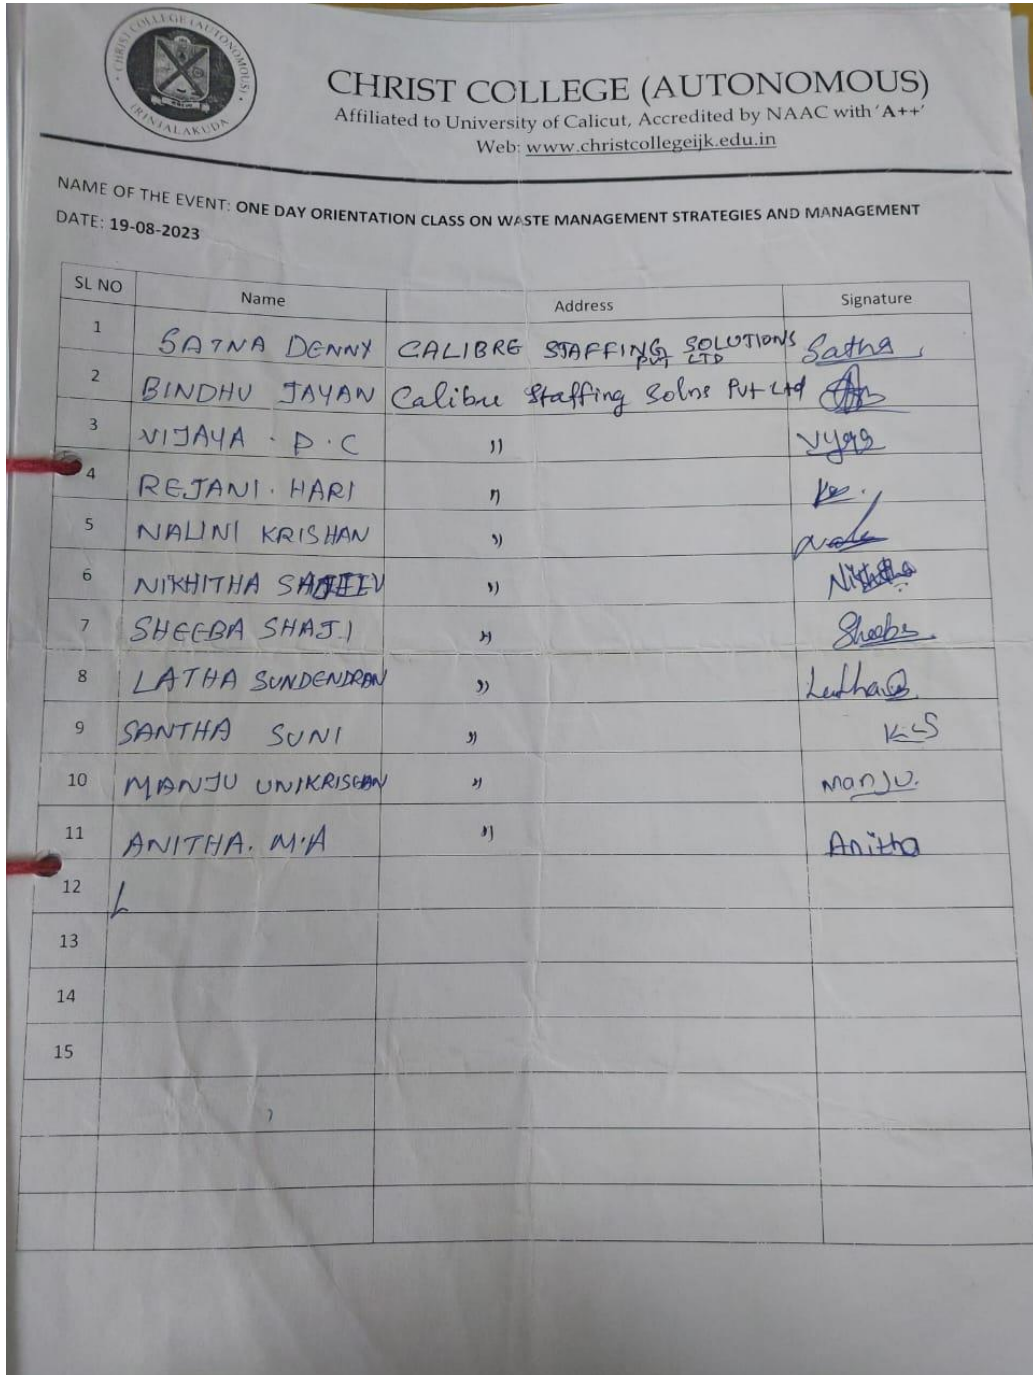 CHRIST COLLEGE (AUTONOMOUS)
IRINJALAKUDA
CHRIST COLLEGE (AUTONOMOUS)
Affiliated to University of Calicut, Accredited by NAAC with 'A++'
Web: www.christcollegeijk.edu.in
NAME OF THE EVENT: ONE DAY ORIENTATION CLASS ON WASTE MANAGEMENT STRATEGIES AND MANAGEMENT
DATE: 19-08-2023
SL NO Name Address Signature
1 SATNA DENNY CALIBRE STAFFING SOLUTIONS PVT LTD Satha
2 BINDHU JAYAN Calibre Staffing Solns Pvt Ltd
3 VIJAYA . P . C ”
4 REJANI . HARI ”
5 NALINI KRISHAN ”
6 NIKHITHA SAJEEV ” Nikhitha
7 SHEEBA SHAJI ” Sheeba
8 LATHA SUNDENDRAN ” Latha
9 SANTHA SUNI ” KCS
10 MANJU UNIKRISHAN ” Manju.
11 ANITHA. M.A ” Anitha
12
13
14
15